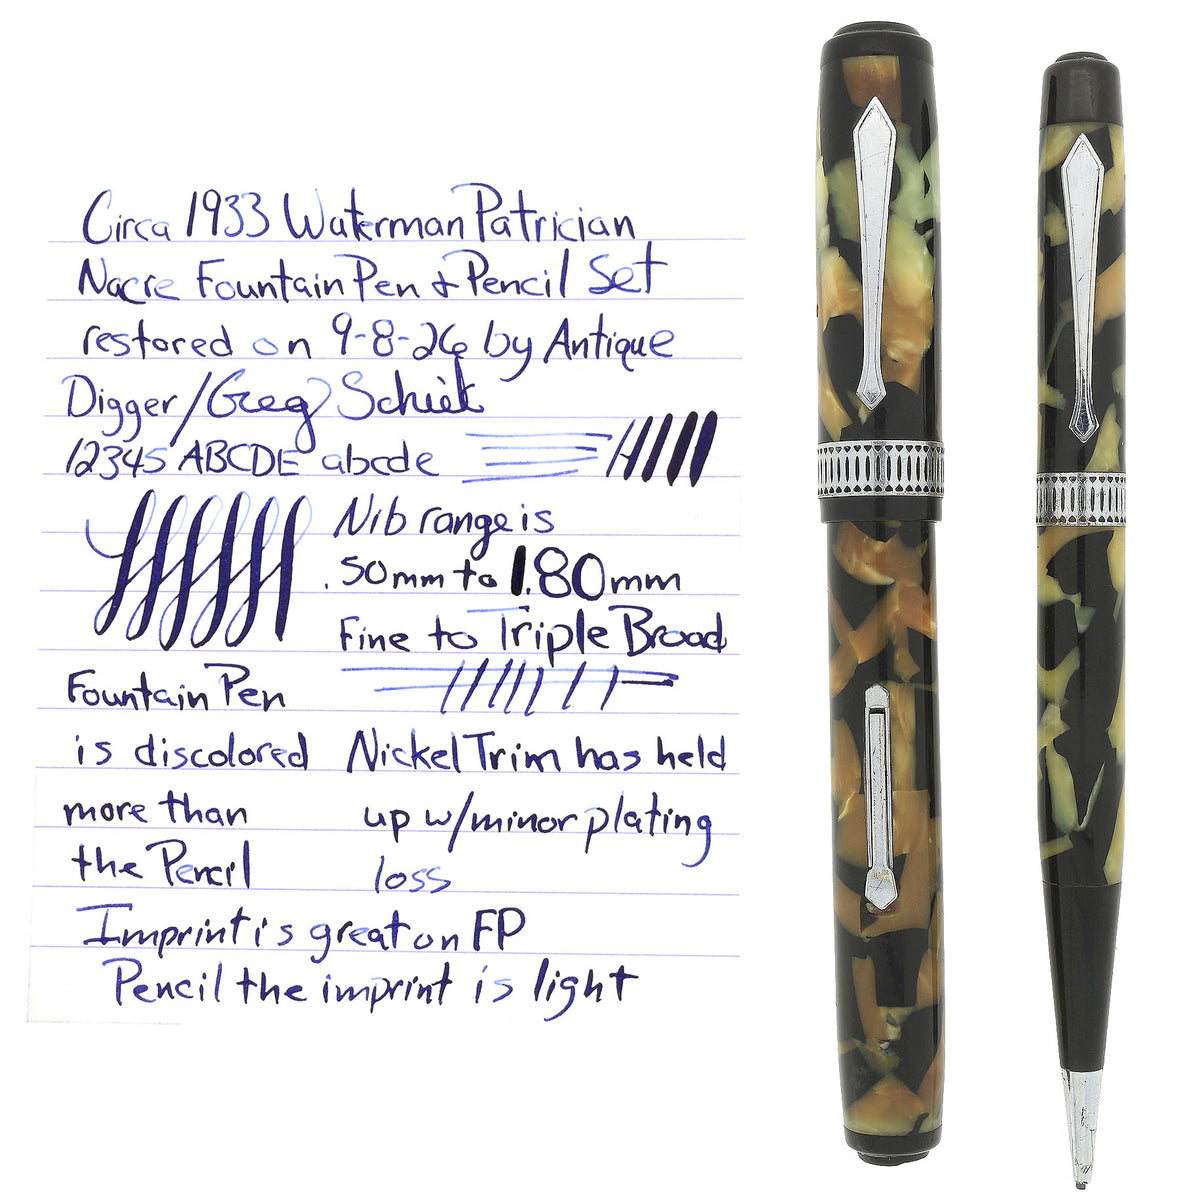 Circa 1933 Waterman Patrician
Nacre Fountain Pen & Pencil Set
restored on 9-8-26 by Antique
Digger/Greg
12345 ABCDE abcde
Nib range is
.50mm to 1.80mm
Fine to Triple Broad
Fountain Pen
is discolored
more than
the Pencil
Nickel Trim has held
up w/minor plating
loss
Imprint is great on FP
Pencil the imprint is light